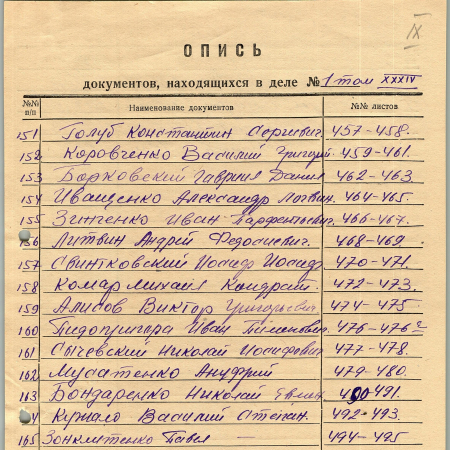 IX
ОПИСЬ
документов, находящихся в деле № 1 том XXXIV
№№ п/п Наименование документов №№ листов
151 Голуб Константин Сергиевич. 457-458.
152 Коровченко Василий Григорий 459-461.
153 Борковский Гавриил Данил 462-463
154 Иващенко Александр Логвин. 464-465.
155 Зинченко Иван Парфентьевич. 466-467.
156 Литвин Андрій Федосиевич. 468-469.
157 Свинтковский Иосиф Иосиф 470-471.
158 Комар Михаил Кондрат. 472-473.
159 Алисов Виктор Григорьевич 474-475.
160 Пидопригора Иван Пименович. 476-476
161 Сычевский Николай Иосифович 477-478.
162 Мусатенко Андрий 479-480.
163 Бондаренко Николай 490-491.
4 Кужало Василий Степан. 492-493.
165 Павел — 494-495